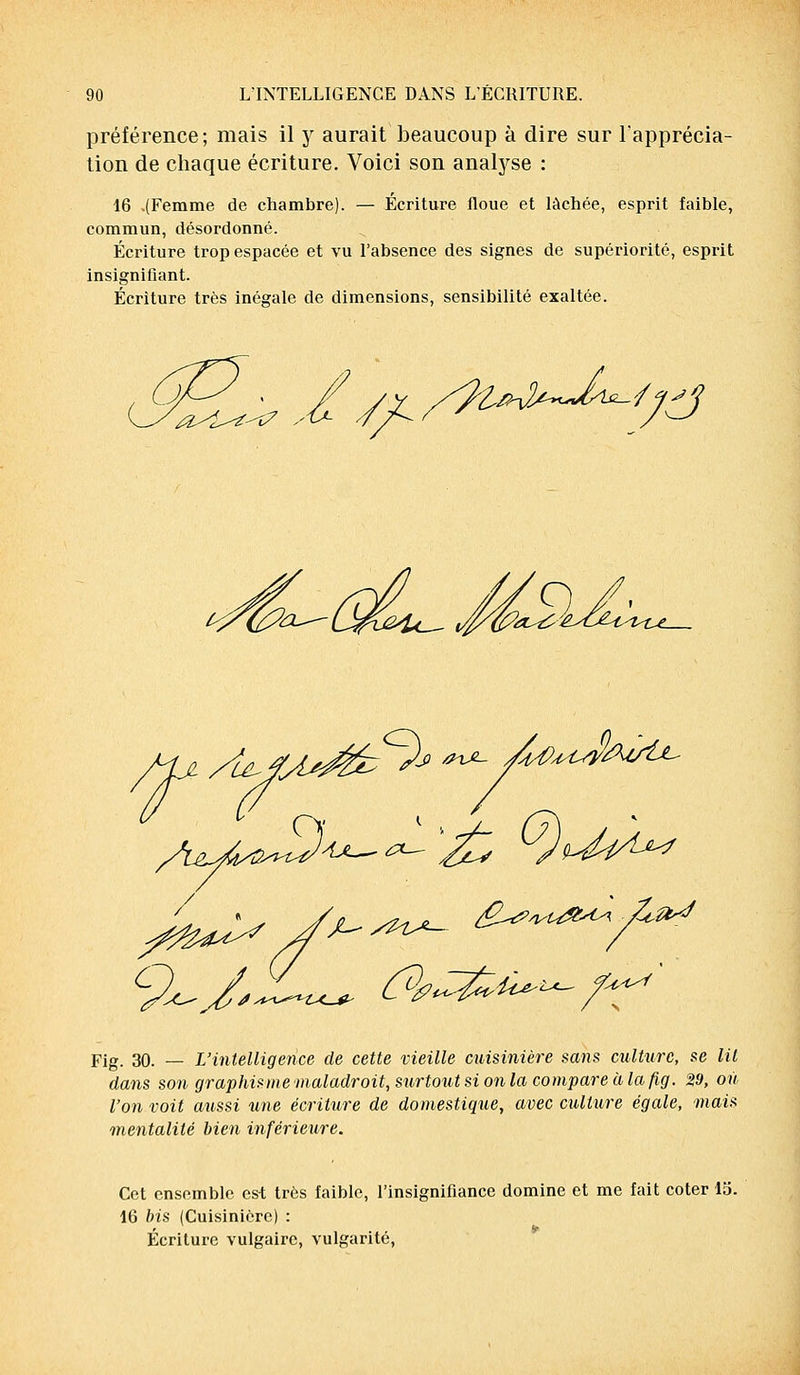 90 L'INTELLIGENCE DANS L'ÉCRITURE.
préférence; mais il y aurait beaucoup à dire sur l'apprécia-
tion de chaque écriture. Voici son analyse :
16 (Femme de chambre). — Écriture floue et lâchée, esprit faible,
commun, désordonné.
Écriture trop espacée et vu l'absence des signes de supériorité, esprit
insignifiant.
Écriture très inégale de dimensions, sensibilité exaltée.
Paris le 17
Ma Cher Madeleine
Je regrette De ne pouvoir
repondre a tes Desires
mais je ne connais pas
De bonne Couturiere
Fig. 30. — L'intelligence de cette vieille cuisinière sans culture, se lit
dans son graphisme maladroit, surtout si on la compare à la fig. 29, où
l'on voit aussi une écriture de domestique, avec culture égale, mais
mentalité bien inférieure.
Cet ensemble est très faible, l'insignifiance domine et me fait coter 15.
16 bis (Cuisinière) :
Écriture vulgaire, vulgarité,